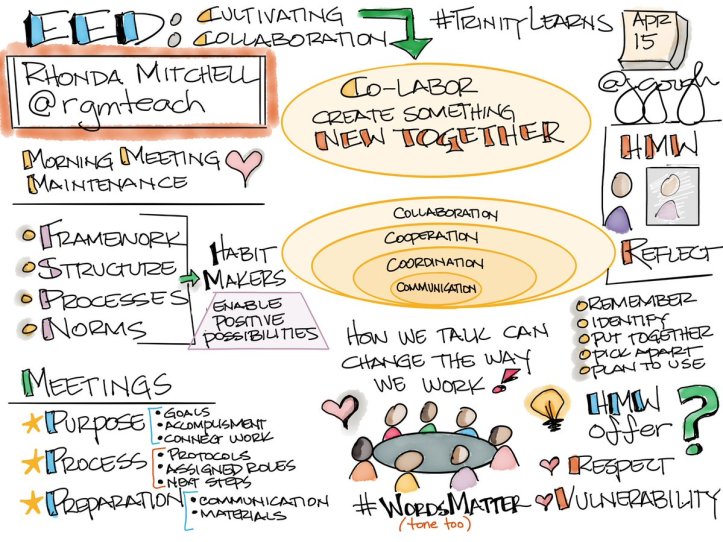 EED: CULTIVATING
COLLABORATION
#TRINITYLEARNS
APR
15
@jgough
RHONDA MITCHELL
@rgmteach
CO-LABOR
CREATE SOMETHING
NEW TOGETHER
MORNING MEETING
MAINTENANCE
HMW
REFLECT
FRAMEWORK
STRUCTURE
PROCESSES
NORMS
HABIT
MAKERS
ENABLE
POSITIVE
POSSIBILITIES
COLLABORATION
COOPERATION
COORDINATION
COMMUNICATION
REMEMBER
IDENTIFY
PUT TOGETHER
PICK APART
PLAN TO USE
HOW WE TALK CAN
CHANGE THE WAY
WE WORK!
MEETINGS
PURPOSE
• GOALS
• ACCOMPLISMENT
• CONNECT WORK
PROCESS
• PROTOCOLS
• ASSIGNED ROLES
• NEXT STEPS
PREPARATION
• COMMUNICATION
• MATERIALS
#WORDSMATTER
(tone too)
HMW
offer
?
RESPECT
VULNERABILITY